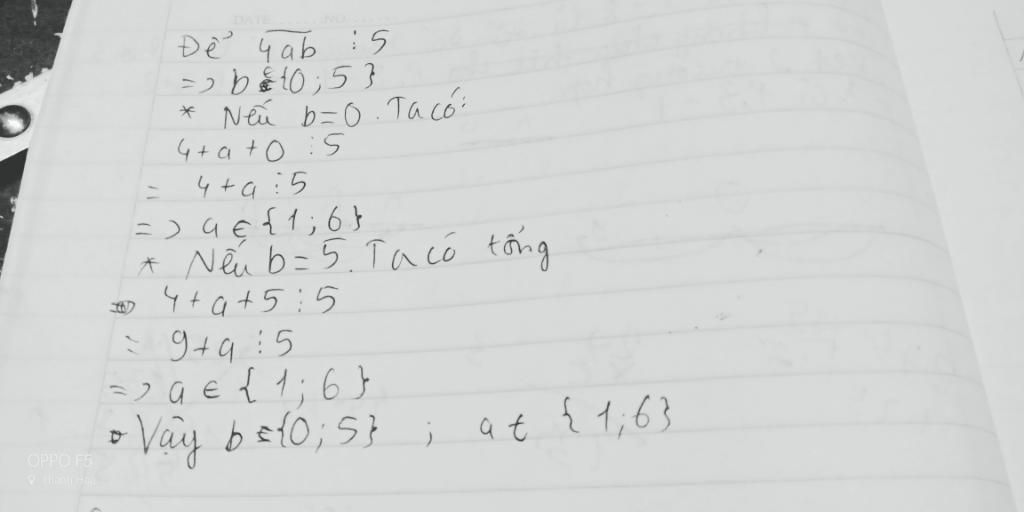 DATE NO
Để 4ab ⋮ 5
=> b ∈ {0 ; 5 }
* Nếu b = 0 . Ta có:
4 + a + 0 ⋮ 5
= 4 + a ⋮ 5
=> a ∈ { 1 ; 6 }
* Nếu b = 5 . Ta có tổng
4 + a + 5 ⋮ 5
= 9 + a ⋮ 5
=> a ∈ { 1 ; 6 }
Vậy b ∈ {0 ; 5} ; a ∈ { 1 ; 6 }
OPPO F5
Thanh Hóa